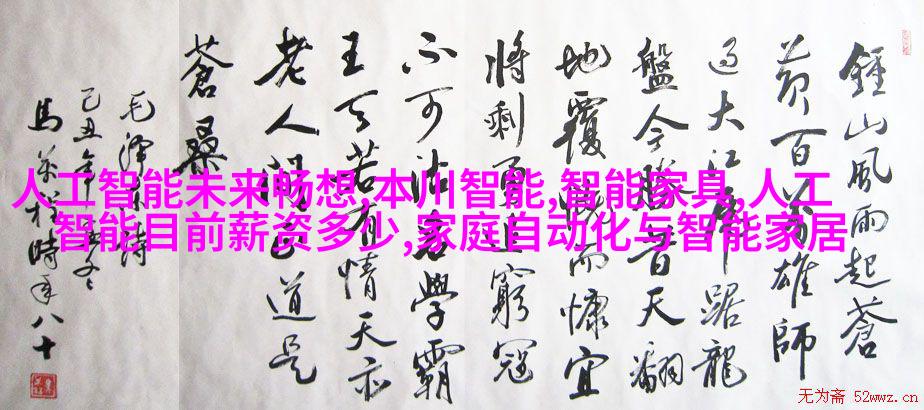 鍾山風雨起蒼
黃百萬雄師
過大江虎踞龍
盤今勝昔天翻
地覆慨而慷宜
將剩勇追窮寇
不可沽名學霸
王天若有情天亦
老人間正道是
蒼桑
毛澤東詩
己丑年冬
馬 時年八十
人工智能未来畅想,本川智能,智能家具,人工
智能目前薪资多少,家庭自动化与智能家居
无为斋 52wwz.cn